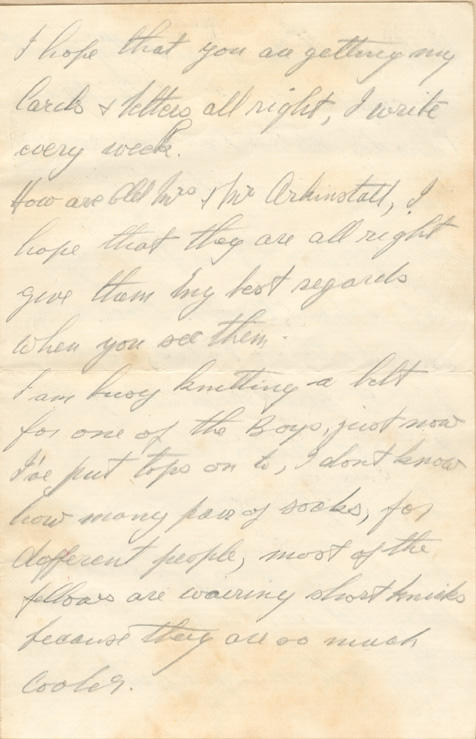 I hope that you are getting my
Cards & letters all right, I write
every week.
How are Old Mrs & Mr Arkinstall, I
hope that they are all right
give them my best regards
when you see them.
I am busy knitting a belt
for one of the Boys, just now
I've put tops on to, I dont know
how many pair of socks, for
different people, most of the
fellows are wairing short knicks
because they are so much
cooler.